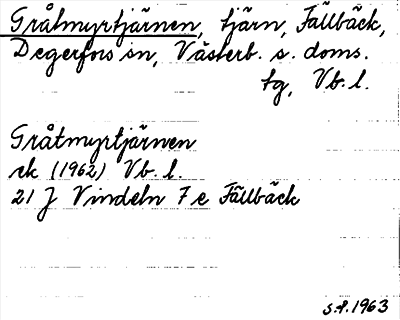 Gråtmyrtjärnen, tjärn, Fällbäck,
Degerfors sn, Västerb. s. doms.
tg, Vb. l.
Gråtmyrtjärnen
rk (1962) Vb. l.
21 J Vindeln 7 e Fällbäck
s.f. 1963